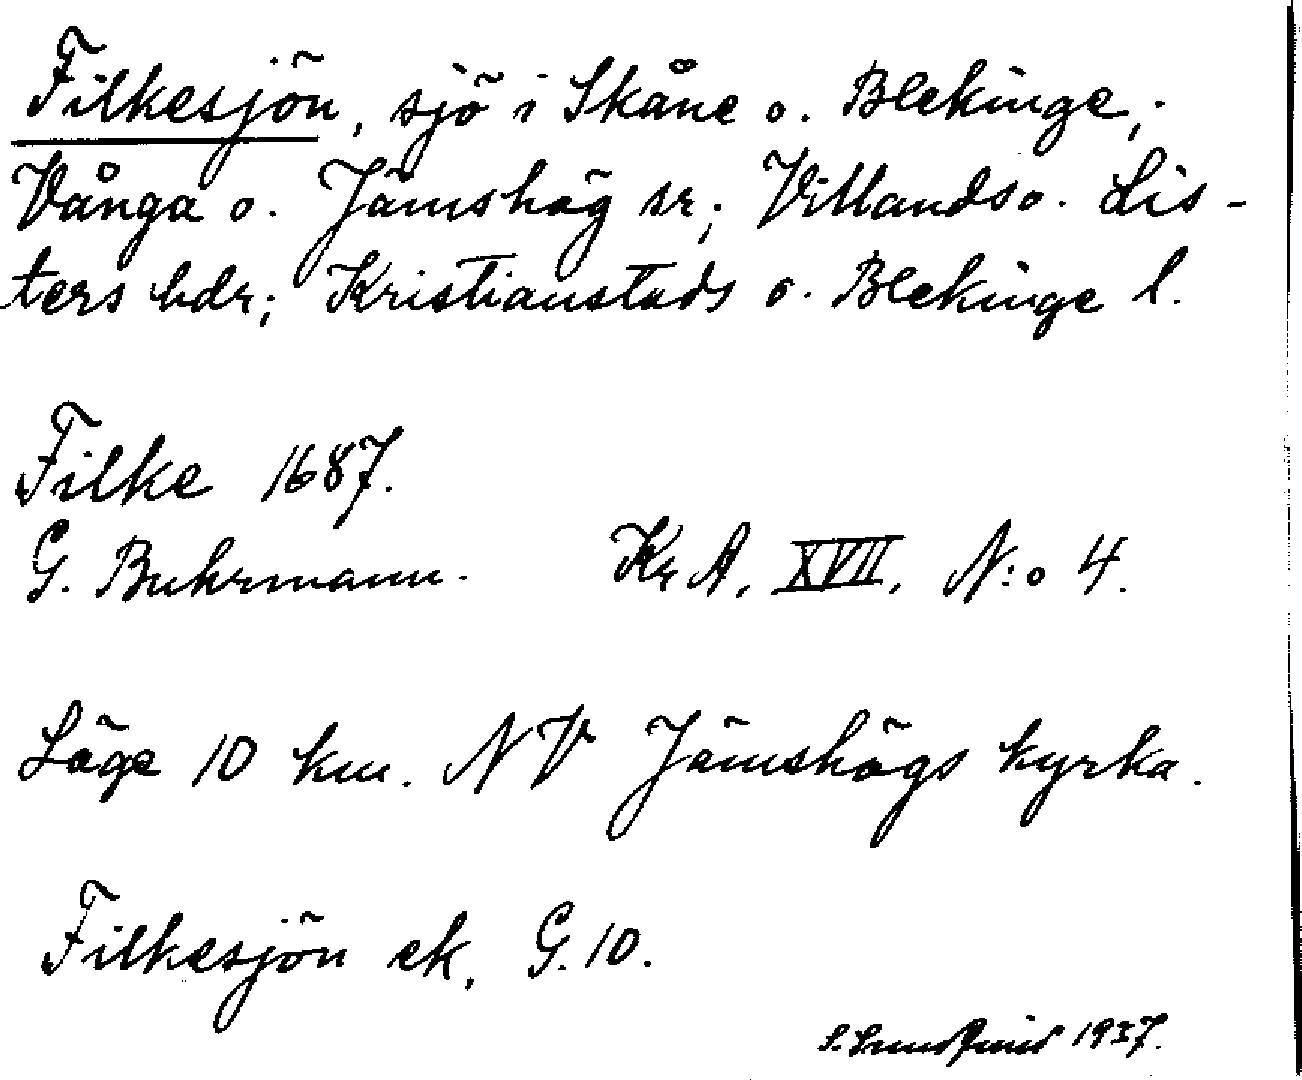 Filkesjön, sjö i Skåne o. Blekinge;
Vånga o. Jämshög sr; Villands o. Lis-
ters hdr; Kristianstads o. Blekinge l.
Filke 1687.
G. Buhrmann. Kr A, XVII, N:o 4.
Läge 10 km. NV Jämshögs kyrka.
Filkesjön ek, G. 10.
1937.